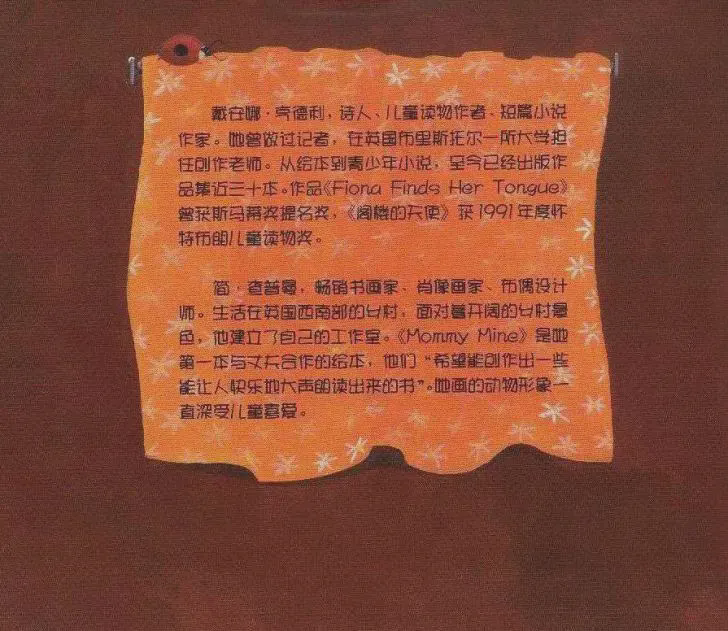 戴安娜·亨德利，诗人、儿童读物作者、短篇小说
作家。她曾做过记者，在英国布里斯托尔一所大学担
任创作老师。从绘本到青少年小说，至今已经出版作
品集近三十本。作品《Fiona Finds Her Tongue》
曾获斯马蒂奖提名奖，《阁楼的天使》获1991年度怀
特布朗儿童读物奖。
简·查普曼，畅销书画家、肖像画家、布偶设计
师。生活在英国西南部的乡村，面对着开阔的乡村景
色，他建立了自己的工作室。《Mommy Mine》是她
第一本与丈夫合作的绘本，他们“希望能创作出一些
能让人快乐地大声朗读出来的书”。她画的动物形象一
直深受儿童喜爱。